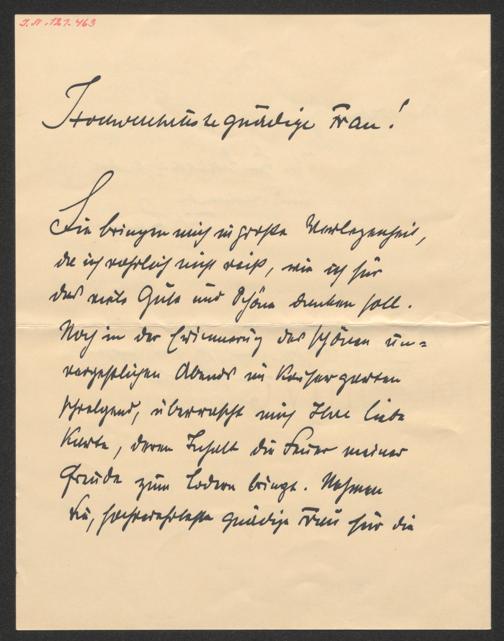 I.N. 127.463
Hochverehrteste gnädige Frau!
Sie bringen mich in große Verlegenheit,
da ich wahrlich nicht weiß, wie ich für
das viele Gute und Schöne danken soll.
Noch in der Erinnerung des schönen un=
vergeßlichen Abends im Kaisergarten
schwelgend, überrascht mich Ihre liebe
Karte, deren Inhalt die Feuer meiner
Freude zum Lodern bringt. Nehmen
Sie, hochverehrteste gnädige Frau für die